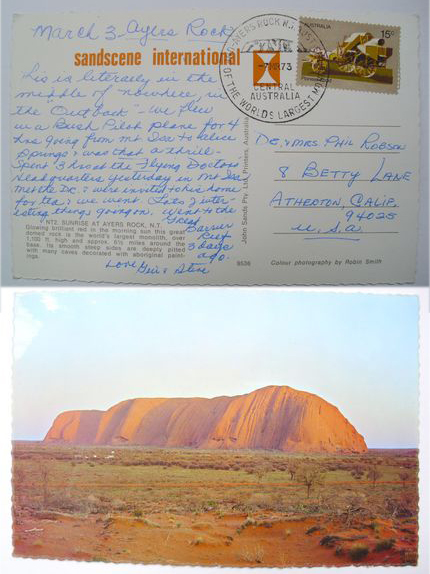 March 3 - Ayers Rock
sandscene international
This is literally in the
middle of nowhere, in
the "Outback" - we flew
in a Bush Pilot plane for 4
hrs going from Mt Isa to Alice
Springs & was that a thrill -
Spent 3 hrs at the Flying Doctors
Headquarters yesterday in Mt Isa
met the Dr. & were invited to his home
for tea & we went. Lots of inter-
esting things going on. Went to the
Great
Barrier
Reef
3 days
ago.
Love
Gen & Steve
NT2. SUNRISE AT AYERS ROCK, N.T.
Glowing brilliant red in the morning sun this great
domed rock is the world's largest monolith, over
1,100 ft. high and approx. 5½ miles around the
base. Its smooth steep sides are deeply pitted
with many caves decorated with aboriginal paint-
ings.
John Sands Pty. Ltd. Printers, Australia
AYERS ROCK N.T.
-7 73
CENTRAL
AUSTRALIA
OF THE WORLD'S LARGEST
AUSTRALIA
15c
DR. & MRS. PHIL ROBSON
8 BETTY LANE
ATHERTON, CALIF.
94025
U.S.A.
Colour photography by Robin Smith